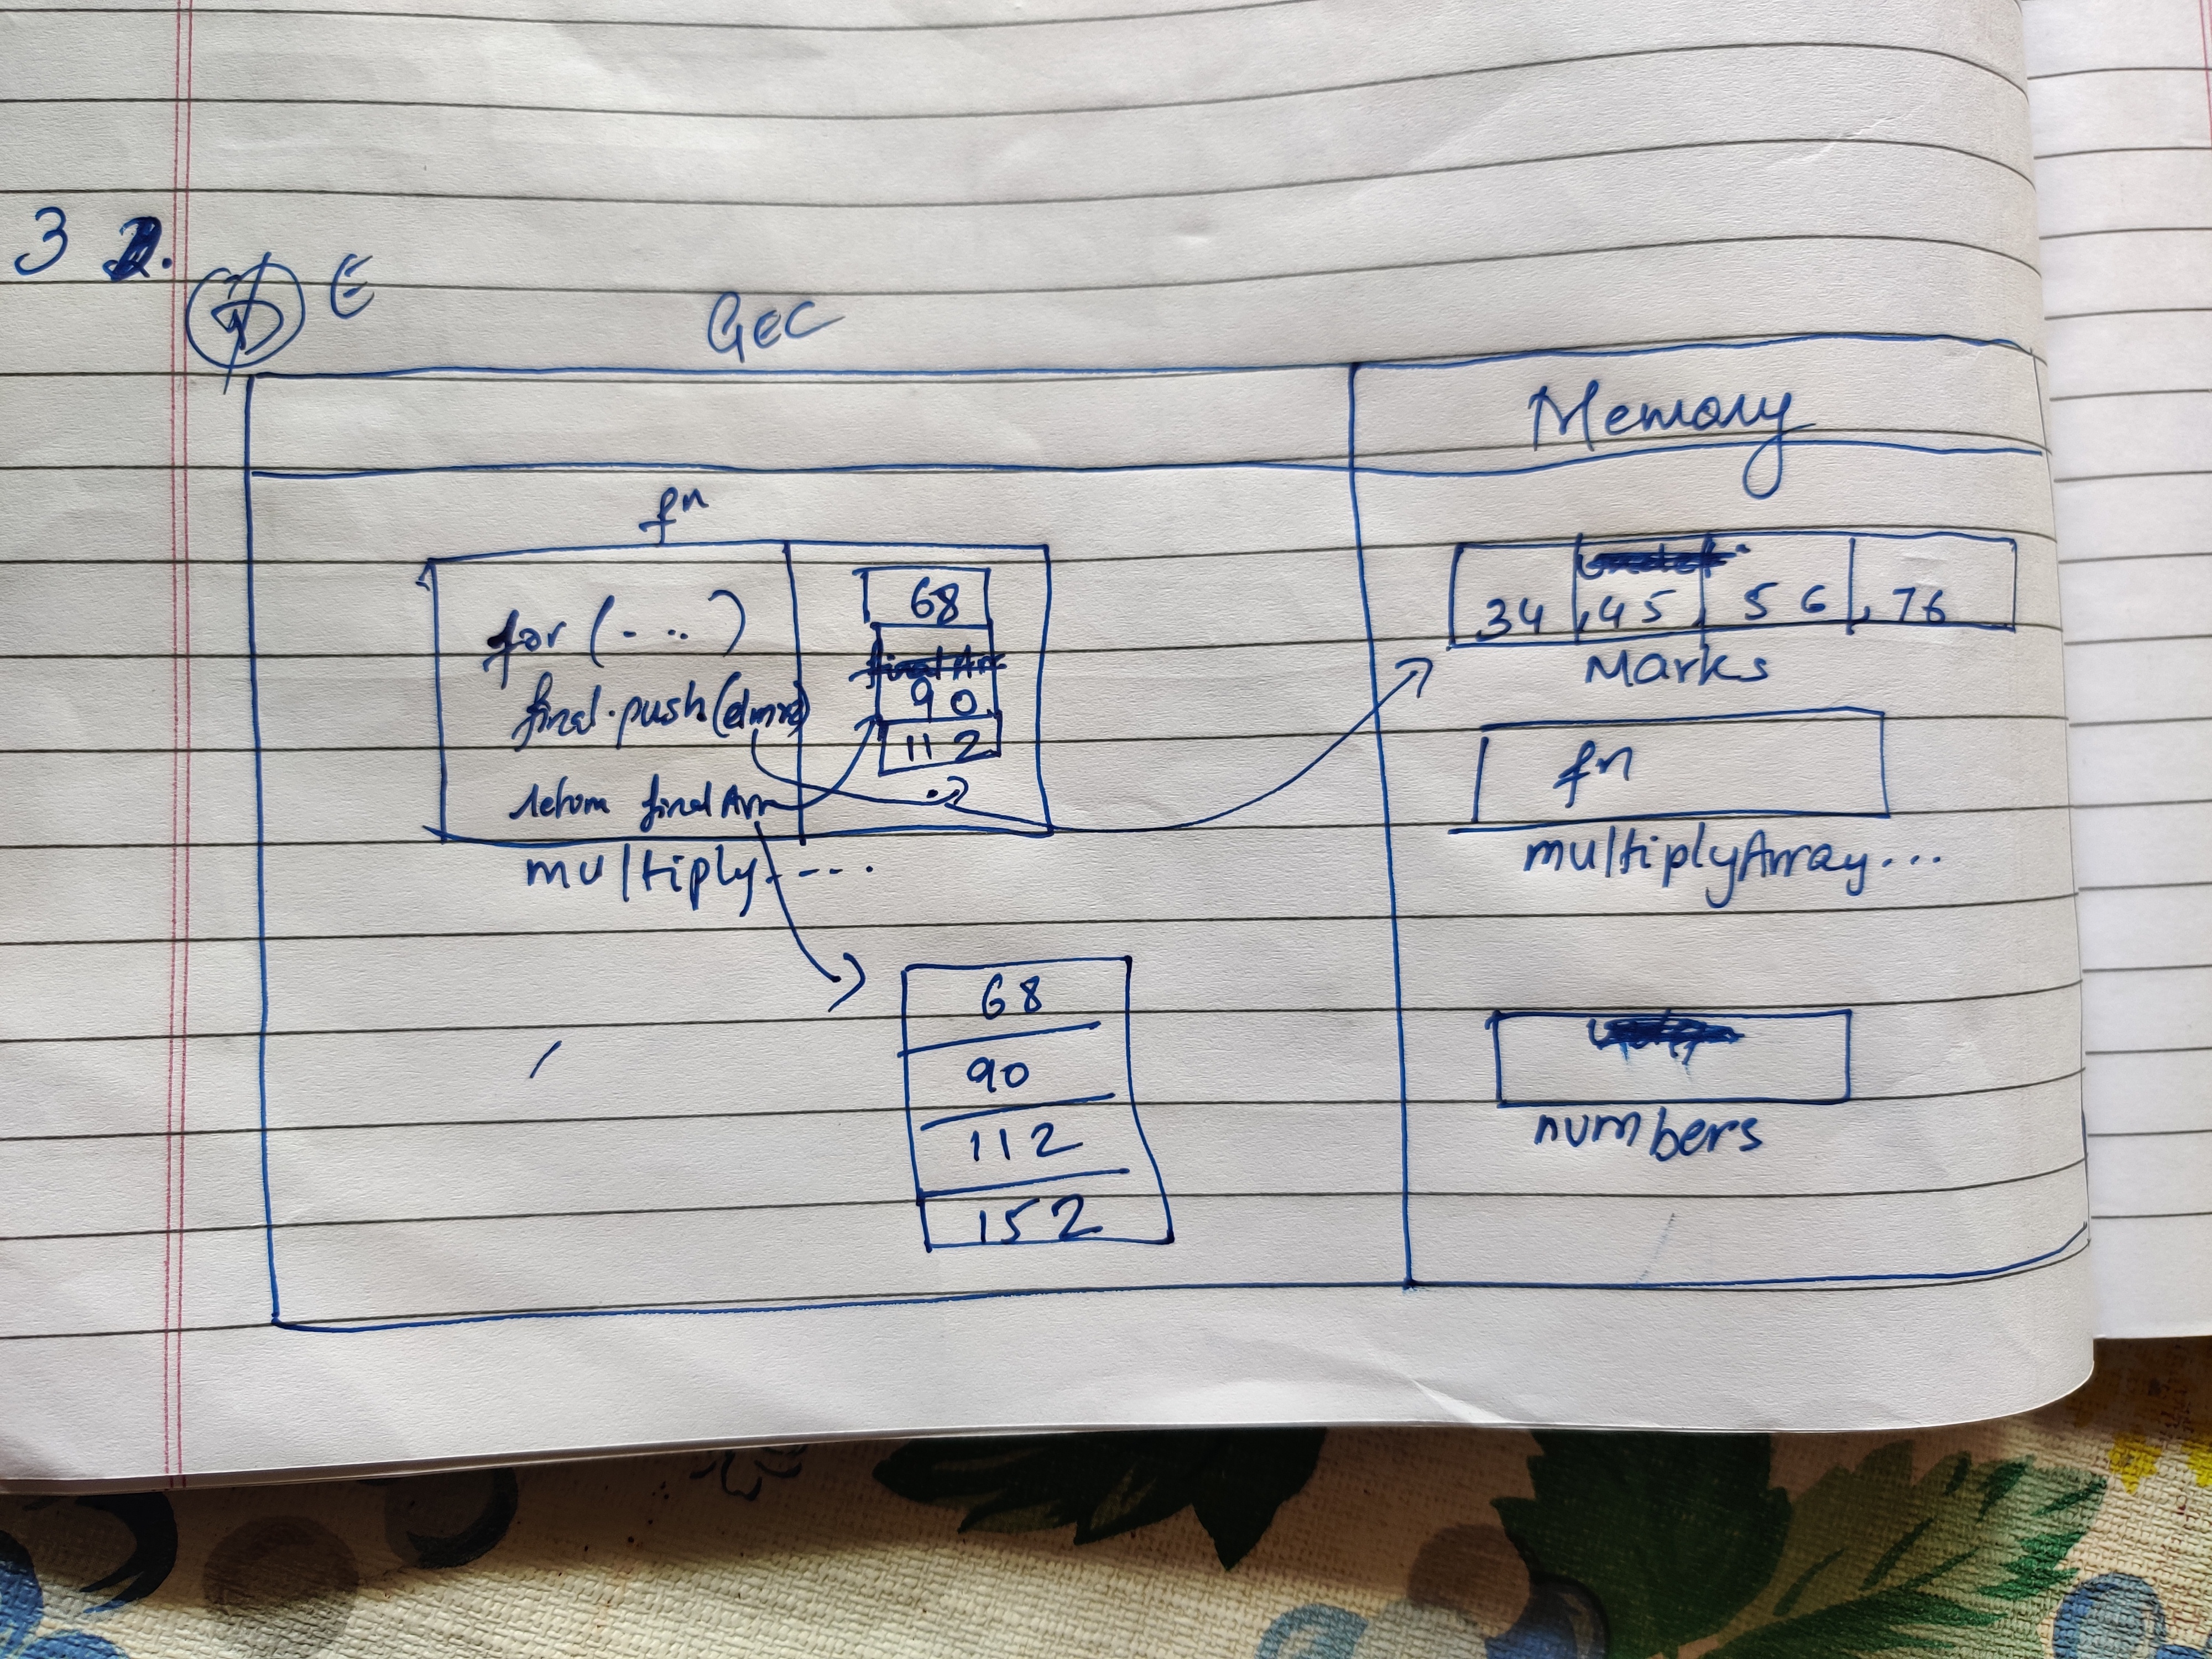 3
E
GEC
Memory
fn
for (- ..)
final.push(elmx2)
return finalArr
68
finalArr
90
112
multiply----
68
90
112
152
34 , 45 , 56 , 76
Marks
fn
multiplyArray...
numbers